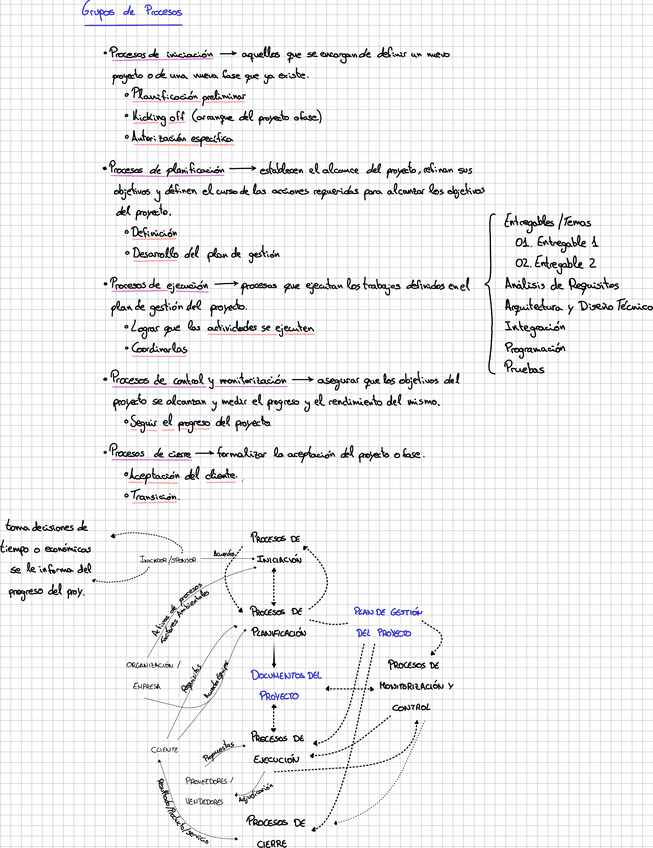 Grupos de Procesos
• Procesos de iniciación → aquellos que se encargan de definir un nuevo
proyecto o de una nueva fase que ya existe.
∘ Planificación preliminar
∘ Kicking off (arranque del proyecto o fase)
∘ Autorización específica
• Procesos de planificación → establecen el alcance del proyecto, refinan sus
objetivos y definen el curso de las acciones requeridas para alcanzar los objetivos
del proyecto.
∘ Definición
∘ Desarollo del plan de gestión
• Procesos de ejecución → procesos que ejecutan los trabajos definidos en el
plan de gestión del proyecto.
∘ Lograr que las actividades se ejecuten
∘ Coordinarlas
Entregables / Temas
01. Entregable 1
02. Entregable 2
Análisis de Requisitos
Arquitectura y Diseño Técnico
Integración
Programación
Pruebas
• Procesos de control y monitorización → asegurar que los objetivos del
proyecto se alcanzan y medir el progreso y el rendimiento del mismo.
∘ Seguir el progreso del proyecto
• Procesos de cierre → formalizar la aceptación del proyecto o fase.
∘ Aceptación del cliente.
∘ Transición.
toma decisiones de
tiempo o económicos
se le informa del
progreso del proy.
INICIADOR/SPONSOR
Acuerdo
PROCESOS DE
INICIACIÓN
Activos de procesos
Factores Ambientales
PROCESOS DE
PLANIFICACIÓN
PLAN DE GESTIÓN
DEL PROYECTO
ORGANIZACIÓN /
EMPRESA
Requisitos
Acuerdo
DOCUMENTOS DEL
PROYECTO
PROCESOS DE
MONITORIZACIÓN Y
CONTROL
CLIENTE
Propuestas
PROCESOS DE
EJECUCIÓN
PROVEEDORES /
VENDEDORES
Adjudicación
Resultado/Producto/servicio
PROCESOS DE
CIERRE